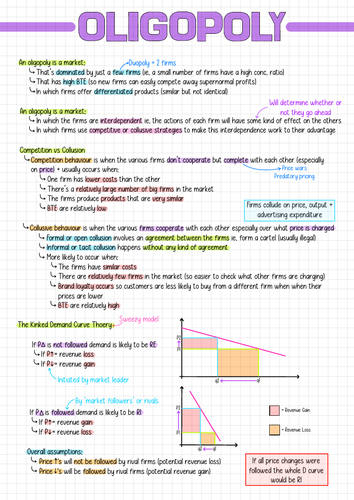 OLIGOPOLY
An oligopoly is a market:
Duopoly = 2 firms
↳ That's dominated by just a few firms (ie, a small number of firms have a high conc, ratio)
↳ That has high BTE (so new firms can easily compete away supernormal profits)
↳ In which firms offer differentiated products (similar but not identical)
Will determine whether or
not they go ahead
An oligopoly is a market:
↳ In which the firms are interdependent ie, the actions of each firm will have some kind of effect on the others
↳ In which firms use competitive or collusive strategies to make this interdependent work to their advantage
Competition vs Collusion
↳ Competition behaviour is when the various firms don't cooperate but complete with each other (especially
on price) + usually occurs when;
Price wars
Predatory pricing
↳ One firm has lower costs than the other
↳ There's a relatively large number of big firms in the market
↳ The firms produce products that are very similar
↳ BTE are relatively low
Firms collude on price, output +
advertising expenditure
↳ Collusive behaviour is when the various firms cooperate with each other especially over what price is charged
↳ Formal or open collusion involves an agreement between the firms ie, form a cartel (usually illegal)
↳ Informal or tacit collusion happens without any kind of agreement
↳ More likely to occur when;
↳ The firms have similar costs
↳ There are relatively few firms in the market (so easier to check what other firms are charging)
↳ Brand loyalty occurs so customers are less likely to buy from a different firm when when their
prices are lower
↳ BTE are relatively high
The Kinked Demand Curve Thoery
Sweezy model
If P∆ is not followed demand is likely to be RE:
↳ If P↑= revenue loss
↳ If P↓= revenue gain
Initiated by market leader
By 'market followers' or rivals
If P∆ is followed demand is likely to be RI:
↳ If P↑= revenue gain
↳ If P↓= revenue loss
= Revenue Gain
= Revenue Loss
Overall assumptions:
↳ Price ↑'s will not be followed by rival firms (potential revenue loss)
↳ Price ↓'s will be followed by rival firms (potential revenue gain)
If all price changes were
followed the whole D curve
would be RI